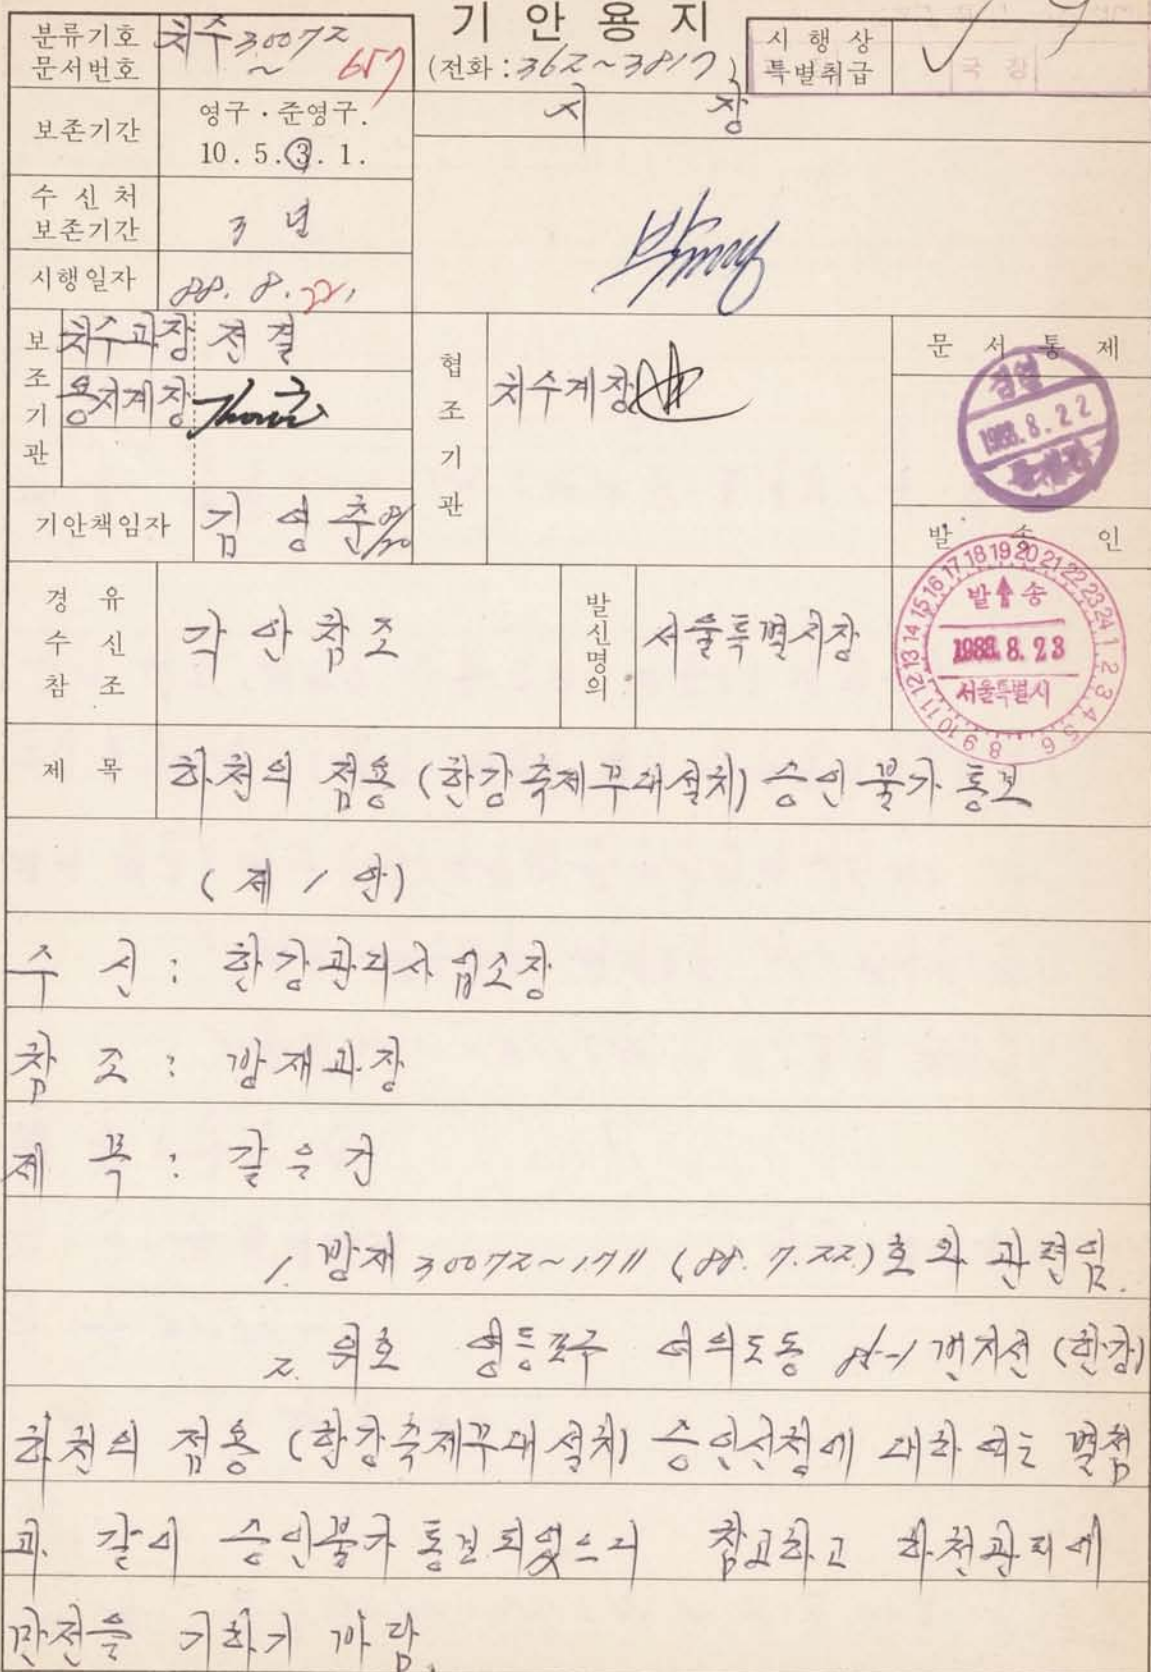 기안용지
분류기호 문서번호 치수30072~ 657
(전화 : 362~3817)
시행상 특별취급
국장
보존기간 영구 · 준영구. 10. 5. 3. 1.
시 장
수신처 보존기간 3년
시행일자 88. 8. 22.
보조기관
치수과장 전결
용지계장
협조기관
치수계장
문서통제
검열
1988. 8. 22
기안책임자 김영춘 8/20
발송인
발송
1988. 8. 23
서울특별시
1 2 3 4 5 6 8 9 10 11 12 13 14 15 16 17 18 19 20 21 22 23 24
경유 수신 참조 각안참조
발신명의 서울특별시장
제목 하천의 점용 (한강축제무대설치) 승인 불가 통보
(제 1 안)
수 신 : 한강관리사업소장
참 조 : 방재과장
제 목 : 같은건
1. 방재 30072~1711 (88. 7. 22.)호와 관련임.
2. 위호 영등포구 여의도동 84-1번지선 (한강)
하천의 점용 (한강축제무대설치) 승인신청에 대하여는 별첨
과 같이 승인불가 통보되었으니 참고하고 하천관리에
만전을 기하기 바람.